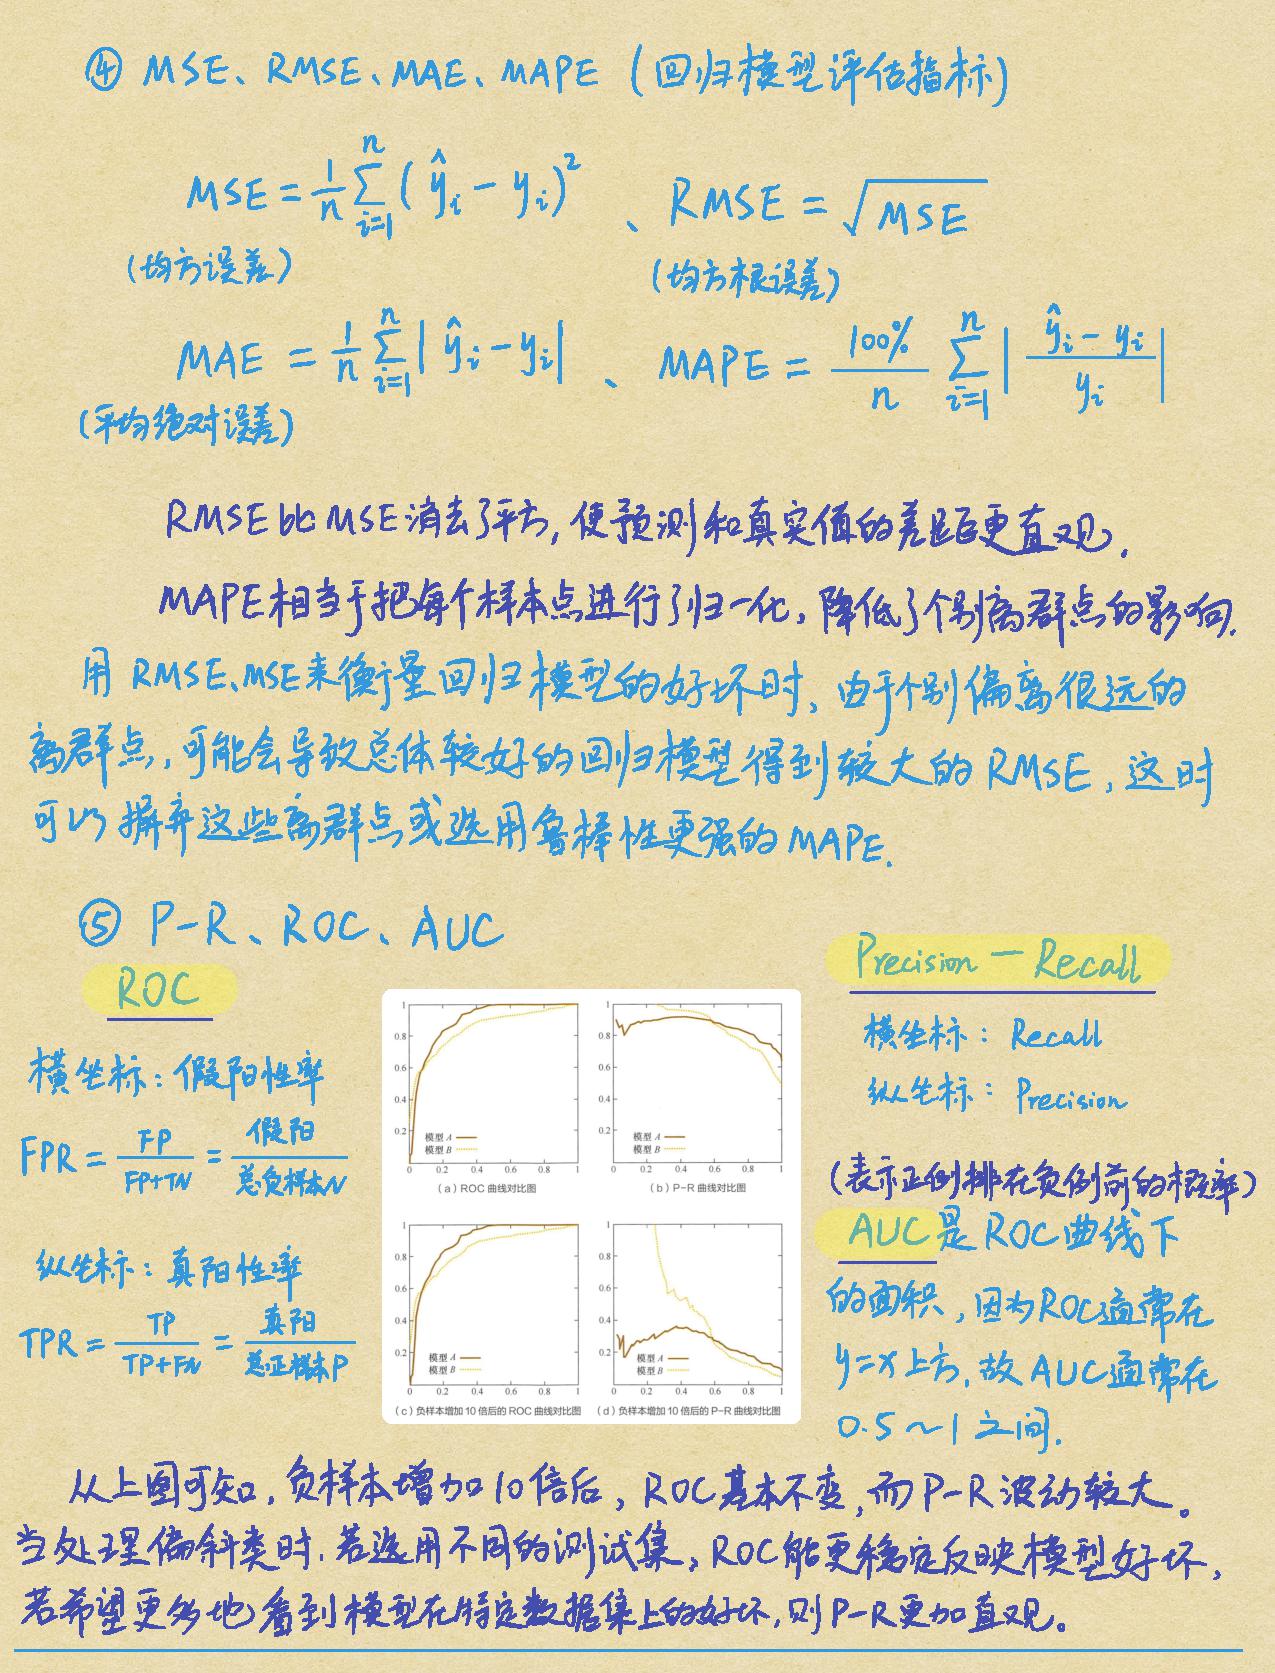 ④ MSE、RMSE、MAE、MAPE (回归模型评估指标)
MSE = 1/n ∑_{i=1}^{n} (ŷi - yi)² 、 RMSE = √MSE
(均方误差) (均方根误差)
MAE = 1/n ∑_{i=1}^{n} |ŷi - yi| 、 MAPE = 100%/n ∑_{i=1}^{n} |(ŷi - yi)/yi|
(平均绝对误差)
RMSE比MSE消去了平方, 使预测和真实值的差距更直观.
MAPE相当于把每个样本点进行了归一化, 降低了个别离群点的影响.
用RMSE、MSE来衡量回归模型的好坏时, 由于个别偏离很远的
离群点, 可能会导致总体较好的回归模型得到较大的RMSE, 这时
可以摒弃这些离群点或选用鲁棒性更强的MAPE.
⑤ P-R、ROC、AUC
ROC
横坐标: 假阳性率
FPR = FP/(FP+TN) = 假阳/总负样本N
纵坐标: 真阳性率
TPR = TP/(TP+FN) = 真阳/总正样本P
1
0.8
0.6
0.4
0.2
0 0.2 0.4 0.6 0.8 1
模型 A
模型 B
(a) ROC 曲线对比图
1
0.8
0.6
0.4
0.2
0 0.2 0.4 0.6 0.8 1
模型 A
模型 B
(b) P-R 曲线对比图
1
0.8
0.6
0.4
0.2
0 0.2 0.4 0.6 0.8 1
模型 A
模型 B
(c) 负样本增加 10 倍后的 ROC 曲线对比图
1
0.8
0.6
0.4
0.2
0 0.2 0.4 0.6 0.8 1
模型 A
模型 B
(d) 负样本增加 10 倍后的 P-R 曲线对比图
Precision — Recall
横坐标: Recall
纵坐标: Precision
(表示正例排在负例前的概率)
AUC是ROC曲线下
的面积, 因为ROC通常在
y=x上方, 故AUC通常在
0.5～1之间.
从上图可知, 负样本增加10倍后, ROC基本不变, 而P-R波动较大。
当处理偏斜类时, 若选用不同的测试集, ROC能更稳定反映模型好坏,
若希望更多地看到模型在特定数据集上的好坏, 则P-R更加直观。